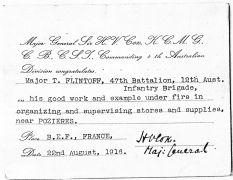 Major General Sir H.V. Cox, K.C.M.G.
C.B., C.S.I., Commanding 4th Australian
Division congratulates.
Major T. FLINTOFF, 47th Battalion, 12th Aust.
Infantry Brigade,
... his good work and example under fire in
organizing and supervising stores and supplies,
near POZIERES.
Place B.E.F., FRANCE.
H.V. Cox.
Date 22nd August, 1916.
Maj: General